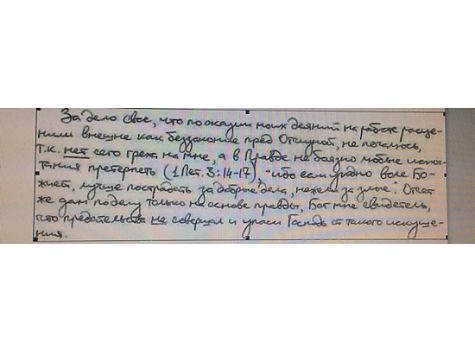 За дело свое, что по оказии моих деяний на работе расце-
нили внешне как беззаконие пред Отчизной, не печалюсь,
т.к. нет сего греха на мне, а в Правде не боязно любые испы-
тания претерпеть (1 Пет. 3:14-17), - ибо если угодно воле Бо-
жией, лучше пострадать за добрые дела, нежели за злые. Ответ
же дам по делу только на основе правды, Бог мне свидетель,
что предательства не совершал и упаси Господь от такого искуше-
ния.